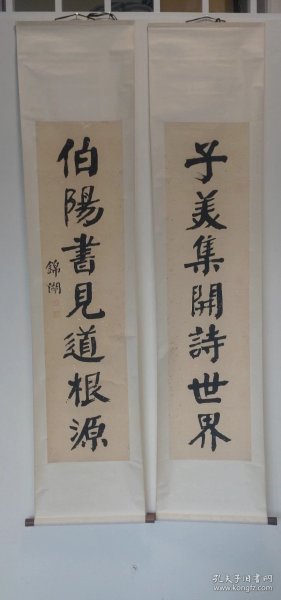 子美集開詩世界
伯陽書見道根源
錦開
孔夫子旧书网
www.kongfz.com